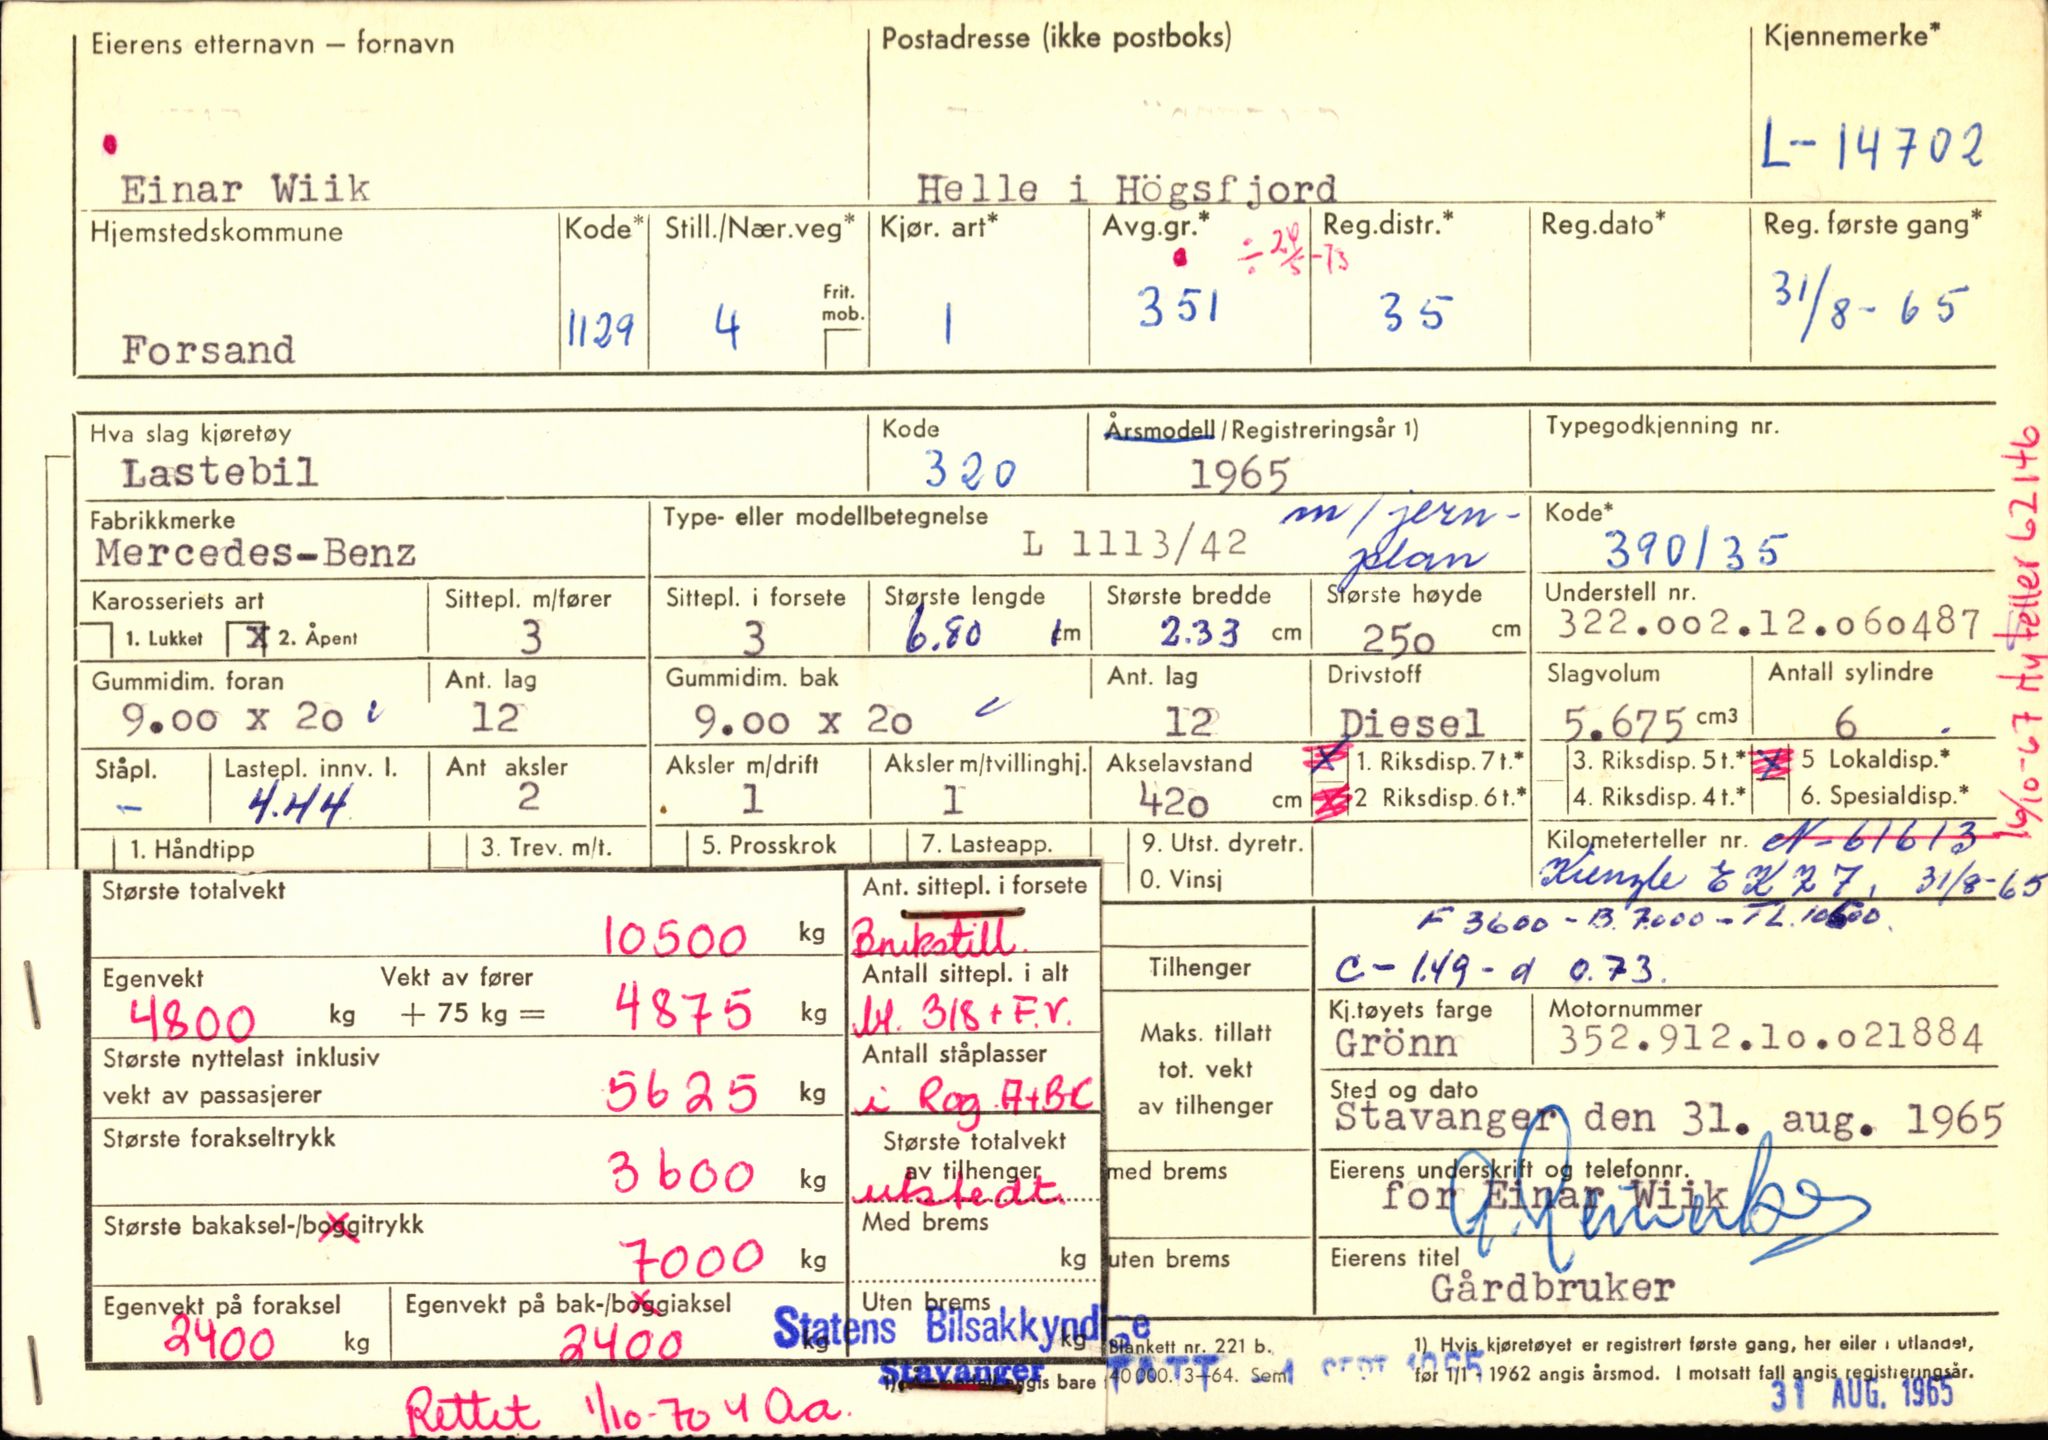 Eierens etternavn — fornavn
Einar Wiik
Postadresse (ikke postboks)
Helle i Högsfjord
Kjennemerke*
L-14702
Hjemstedskommune
Forsand
Kode*
1129
Still./Nær.veg*
4
Frit. mob.
Kjør. art*
1
Avg.gr.*
351
÷ 24/5-73
Reg.distr.*
35
Reg.dato*
Reg. første gang*
31/8-65
Hva slag kjøretøy
Lastebil
Kode
320
Årsmodell/Registreringsår 1)
1965
Typegodkjenning nr.
Fabrikkmerke
Mercedes-Benz
Type- eller modellbetegnelse
L 1113/42
m/jern-
plan
Kode*
390/35
Karosseriets art
1. Lukket
X 2. Åpent
Sittepl. m/fører
3
Sittepl. i forsete
3
Største lengde
6.80 cm
Største bredde
2.33 cm
Største høyde
250 cm
Understell nr.
322.002.12.060487
Gummidim. foran
9.00 x 20
Ant. lag
12
Gummidim. bak
9.00 x 20
Ant. lag
12
Drivstoff
Diesel
Slagvolum
5.675 cm3
Antall sylindre
6
Ståpl.
-
Lastepl. innv. l.
4.44
Ant aksler
2
Aksler m/drift
1
Aksler m/tvillinghj.
1
Akselavstand
420 cm
X 1. Riksdisp. 7 t.*
X 2 Riksdisp. 6 t.*
3. Riksdisp. 5 t.*
4. Riksdisp. 4 t.*
X 5 Lokaldisp.*
6. Spesialdisp.*
1. Håndtipp
3. Trev. m/t.
5. Prosskrok
7. Lasteapp.
9. Utst. dyretr.
0. Vinsj
Kilometerteller nr. N-61613
Kienzle EKZ7, 31/8-65
16/10-67 Ny teller 62146
F 3600 - B. 7000 - TL. 10500.
C - 1.49 - d 0.73.
Største totalvekt
10500 kg
Egenvekt
4800 kg
Vekt av fører
+ 75 kg =
4875 kg
Største nyttelast inklusiv
vekt av passasjerer
5625 kg
Største forakseltrykk
3600 kg
Største bakaksel-/boggitrykk
7000 kg
Egenvekt på foraksel
2400 kg
Egenvekt på bak-/boggiaksel
2400 kg
Ant. sittepl. i forsete
Brukstill.
Antall sittepl. i alt
bl. 3/8 + F.V.
Antall ståplasser
i Rog. A+B+C
Største totalvekt
av tilhenger
utstedt.
Med brems
kg
Uten brems
kg
Statens Bilsakkyndige
Stavanger
angis bare
Rettet 1/10-70 4 Aa.
Tilhenger
Maks. tillatt
tot. vekt
av tilhenger
med brems
uten brems
Kj.tøyets farge
Grönn
Motornummer
352.912.10.021884
Sted og dato
Stavanger den 31. aug. 1965
Eierens underskrift og telefonnr.
for Einar Wiik
Eierens titel
Gårdbruker
Blankett nr. 221 b.
40 000. 3-64. Sem
TATT - 1 SEPT 1965
1) Hvis kjøretøyet er registrert første gang, her eiler i utlandet,
før 1/1 - 1962 angis årsmod. I motsatt fall angis registreringsår.
31 AUG. 1965